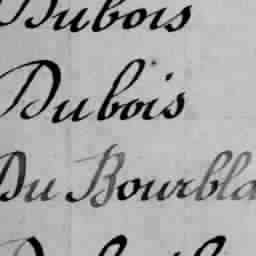 Dubois
Dubois
Du Bourbla